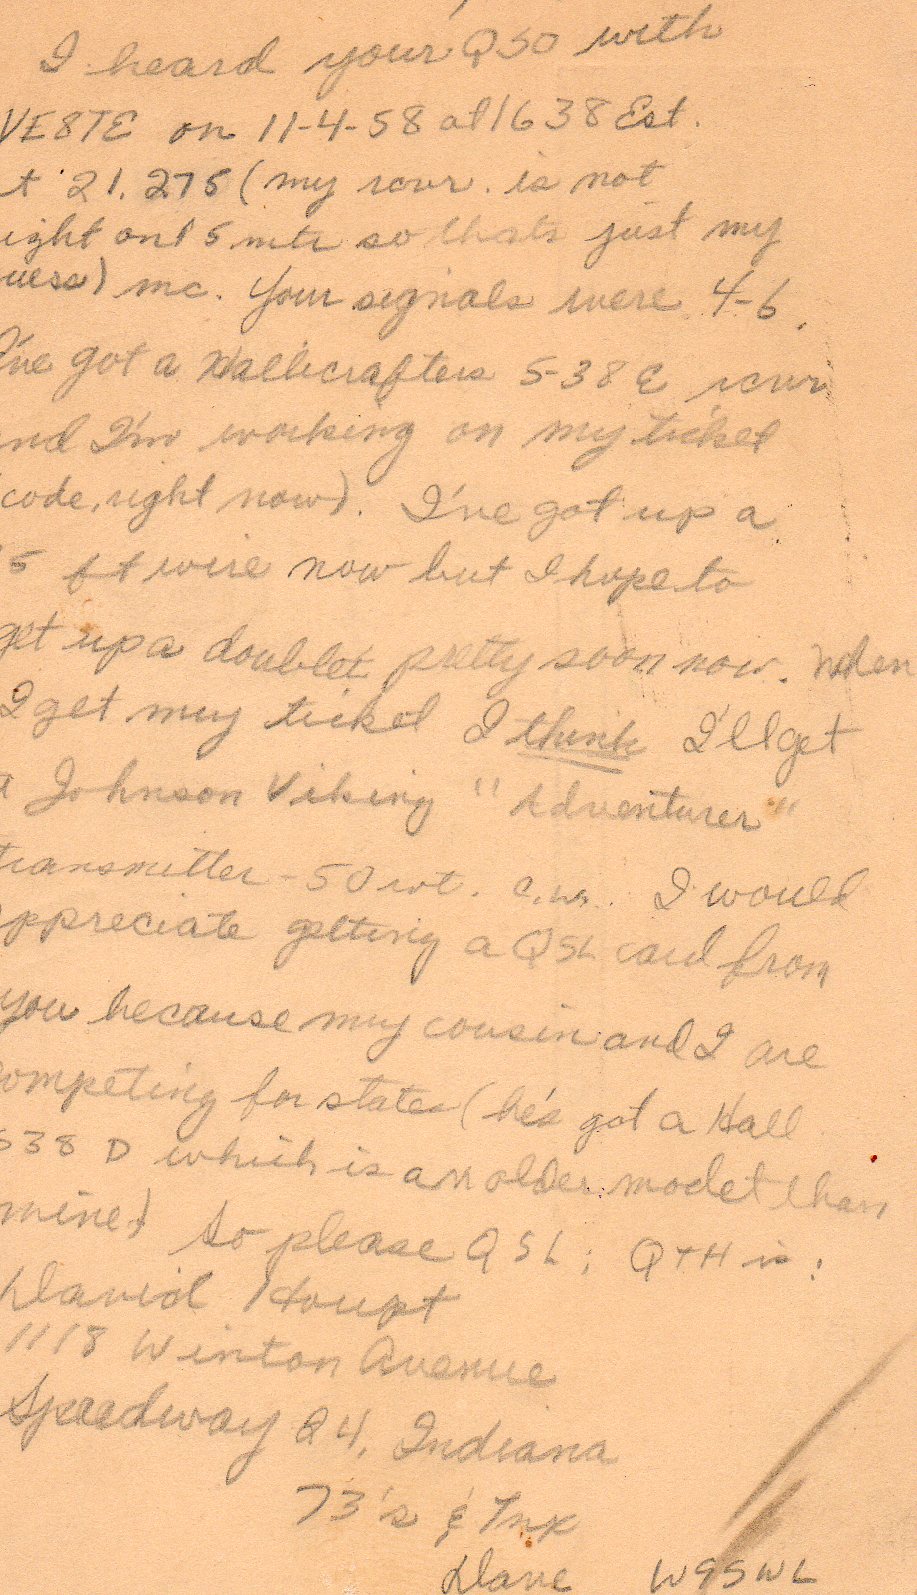 I heard your QSO with
VE8TE on 11-4-58 at 1638 Est.
t 21.275 (my rcvr. is not
ight on 15 mtr so thats just my
uess) mc. Your signals were 4-6.
I've got a Hallicrafters S-38 E rcvr
nd I'm working on my ticket
(code, right now). I've got up a
5 ft wire now but I hope to
get up a doublet pretty soon now. When
I get my ticket I think I'll get
a Johnson Viking "Adventurer"
transmitter - 50 wt. c.w. I would
appreciate getting a QSL card from
you because my cousin and I are
ompeting for states (he's got a Hall
S38 D which is an older model than
mine) So please QSL; QTH is:
David Houpt
1118 Winton Avenue
Speedway 24, Indiana
73's & Tnx
Dave W9SWL